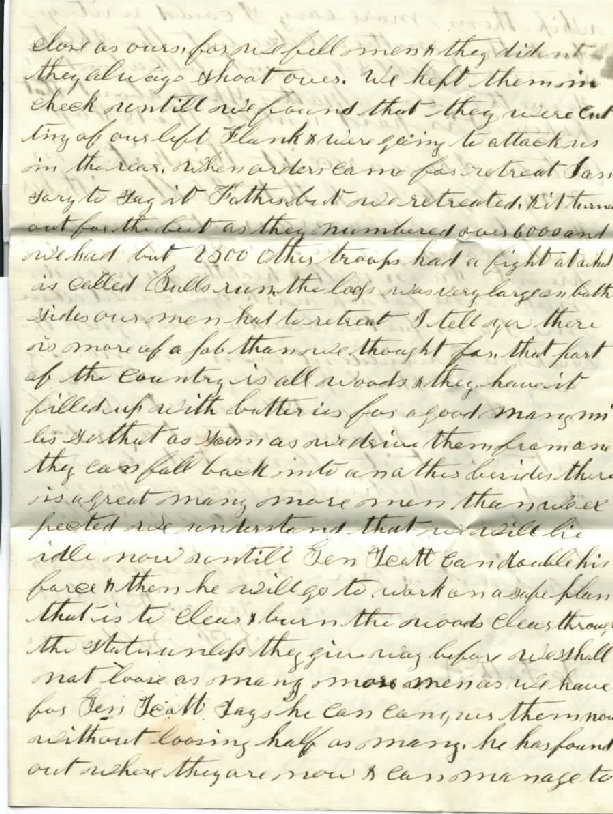 close as ours, for we fell men & they did nt
they always shoot over. We kept them in
check untill we found that they were cut
ting of our left Flank & were going to attack us
in the rear. when orders came for retreat I am
sory to say it Father but we retreated. & it turned
out for the best as they numbered over 6000 and
we had but 2300 Other troops had a fight at what
is called Bulls run, the loss was very large on both
sides our men had to retreat I tell you there
is more of a job than we thought for, that part
of the Country is all woods & they have it
filled up with batteries for a good many mi
les so that as soon as we drive them from one
they can fall back into another besides there
is a great many more men than we ex
pected we understand that we will lie
idle now untill Gen Scott can double his
force & then he will go to work on a safe plan
that is to clear & burn the woods clear through
the State unless they give way before we shall
not loose as many more men as we have
for Gen Scott says he can conquer them now
without loosing half as many, he has found
out where they are now & can manage to